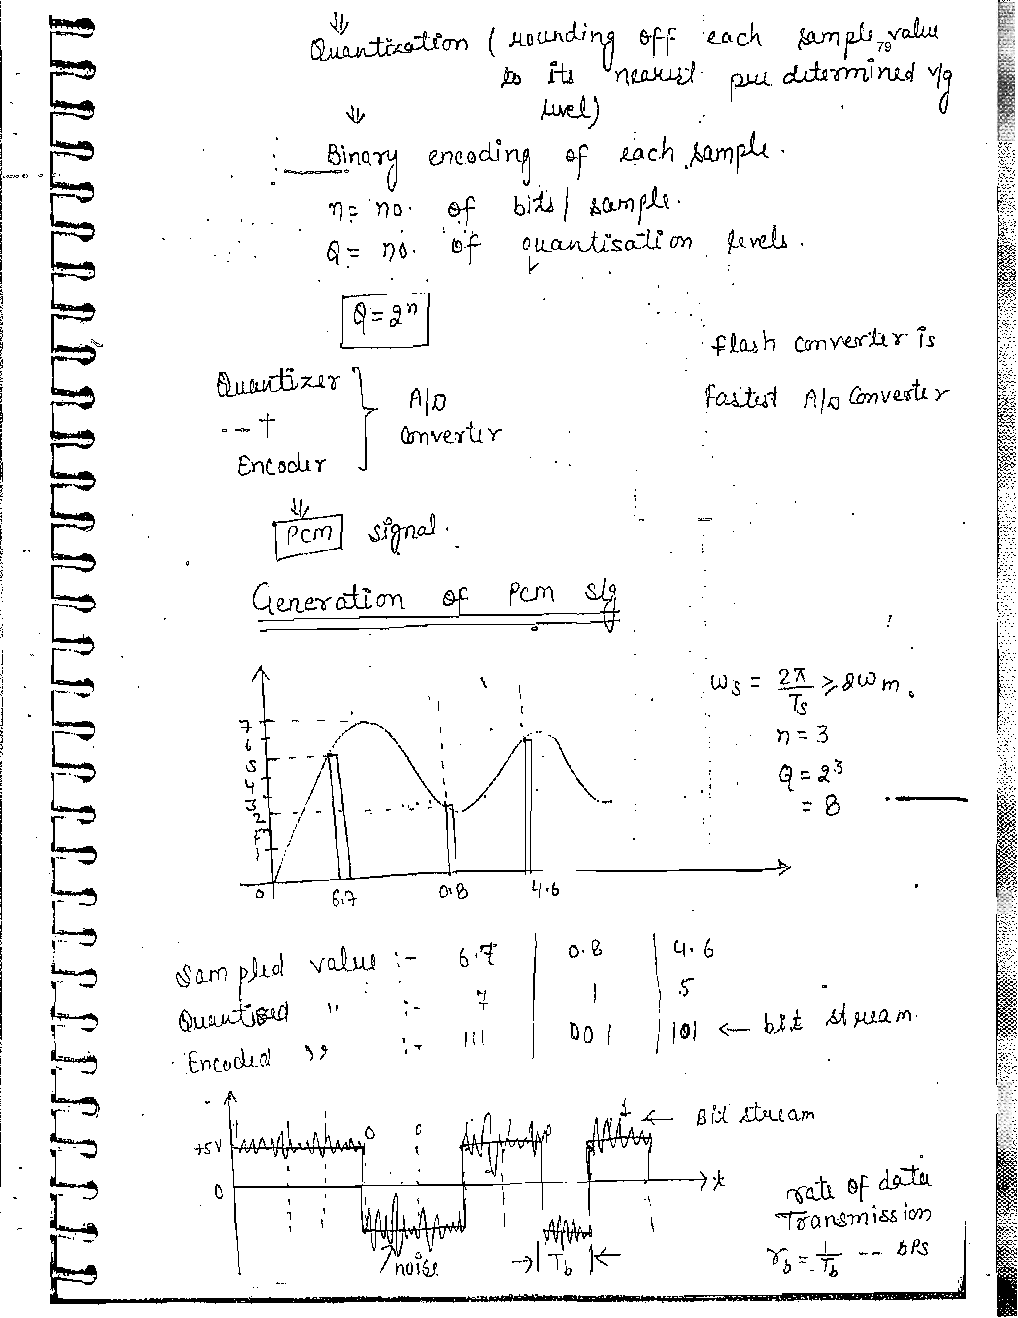 Quantization ( rounding off each sample value
79
to its nearest pre determined v/g
level)
Binary encoding of each sample.
n = no. of bits / sample.
Q = no. of quantisation levels.
Q = 2ⁿ
flash converter is
fastest A/D Converter
Quantizer
+
Encoder
A/D
Converter
PCM signal.
Generation of PCM s/g
ωs = 2π/Ts ≥ 2ωm.
n = 3
Q = 2³
= 8
7
6
5
4
3
2
1
0
6.7 0.8 4.6
Sampled value :- 6.7 | 0.8 | 4.6
Quantised " :- 7 | 1 | 5
Encoded " :- 111 | 001 | 101 ← bit stream.
+5V
0
0 0 1 0 1 ← Bit stream
t
noise
Tb
rate of data
Transmission
rb = 1/Tb -- bPS